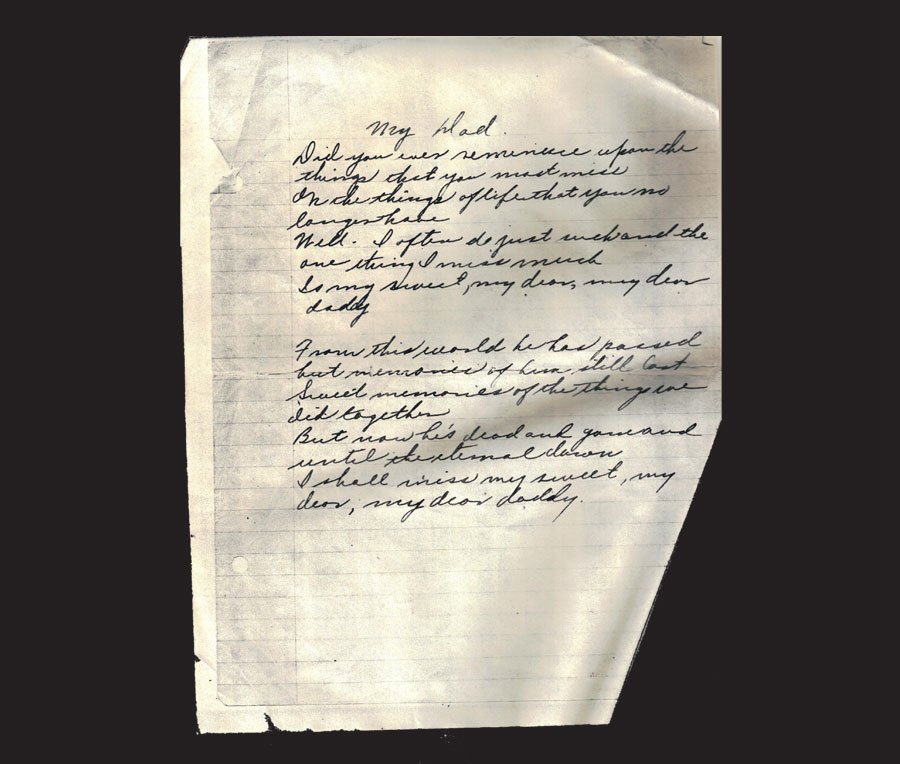 My Dad.
Did you ever reminisce upon the
things that you most miss
Or the things of life that you no
longer have
Well. I often do just such and the
one thing I miss much
Is my sweet, my dear, my dear
daddy
From this world he has passed
but memories of him still last
Sweet memories of the things we
did together
But now he's dead and gone and
until the eternal dawn
I shall miss my sweet, my
dear, my dear daddy.